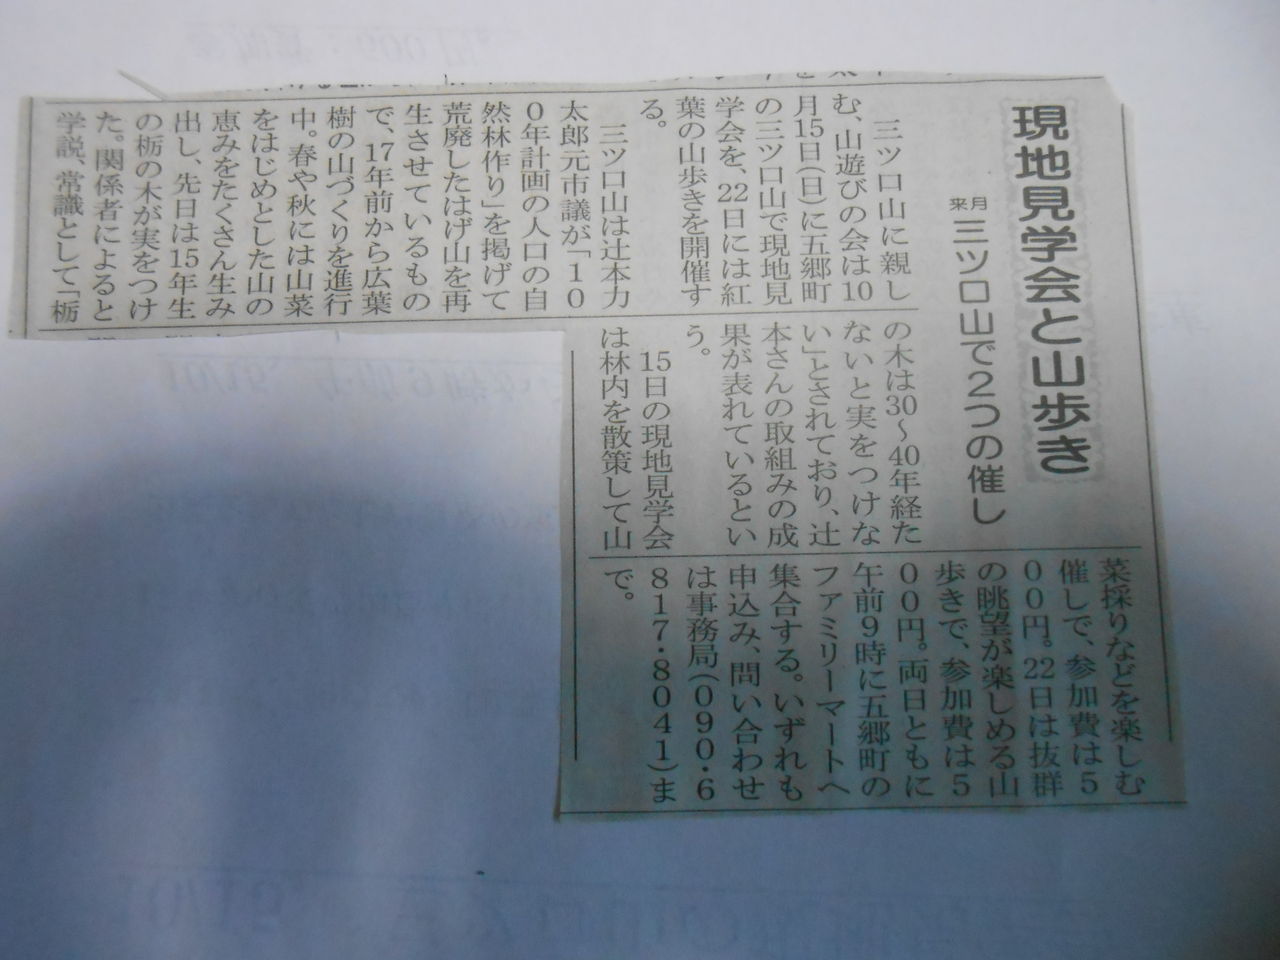 現地見学会と山歩き
来月
三ツ口山で2つの催し
三ツ口山に親し
む、山遊びの会は10
月15日(日)に五郷町
の三ツ口山で現地見
学会を、22日には紅
葉の山歩きを開催す
る。
三ツ口山は辻本力
太郎元市議が「10
0年計画の人口の自
然林作り」を掲げて
荒廃したはげ山を再
生させているもの
で、17年前から広葉
樹の山づくりを進行
中。春や秋には山菜
をはじめとした山の
恵みをたくさん生み
出し、先日は15年生
の栃の木が実をつけ
た。関係者によると
学説、常識として「栃
の木は30〜40年経た
ないと実をつけな
い」とされており、辻
本さんの取組みの成
果が表れているとい
う。
15日の現地見学会
は林内を散策して山
菜採りなどを楽しむ
催しで、参加費は5
00円。22日は抜群
の眺望が楽しめる山
歩きで、参加費は5
00円。両日ともに
午前9時に五郷町の
ファミリーマートへ
集合する。いずれも
申込み、問い合わせ
は事務局(090・6
817・8041)ま
で。